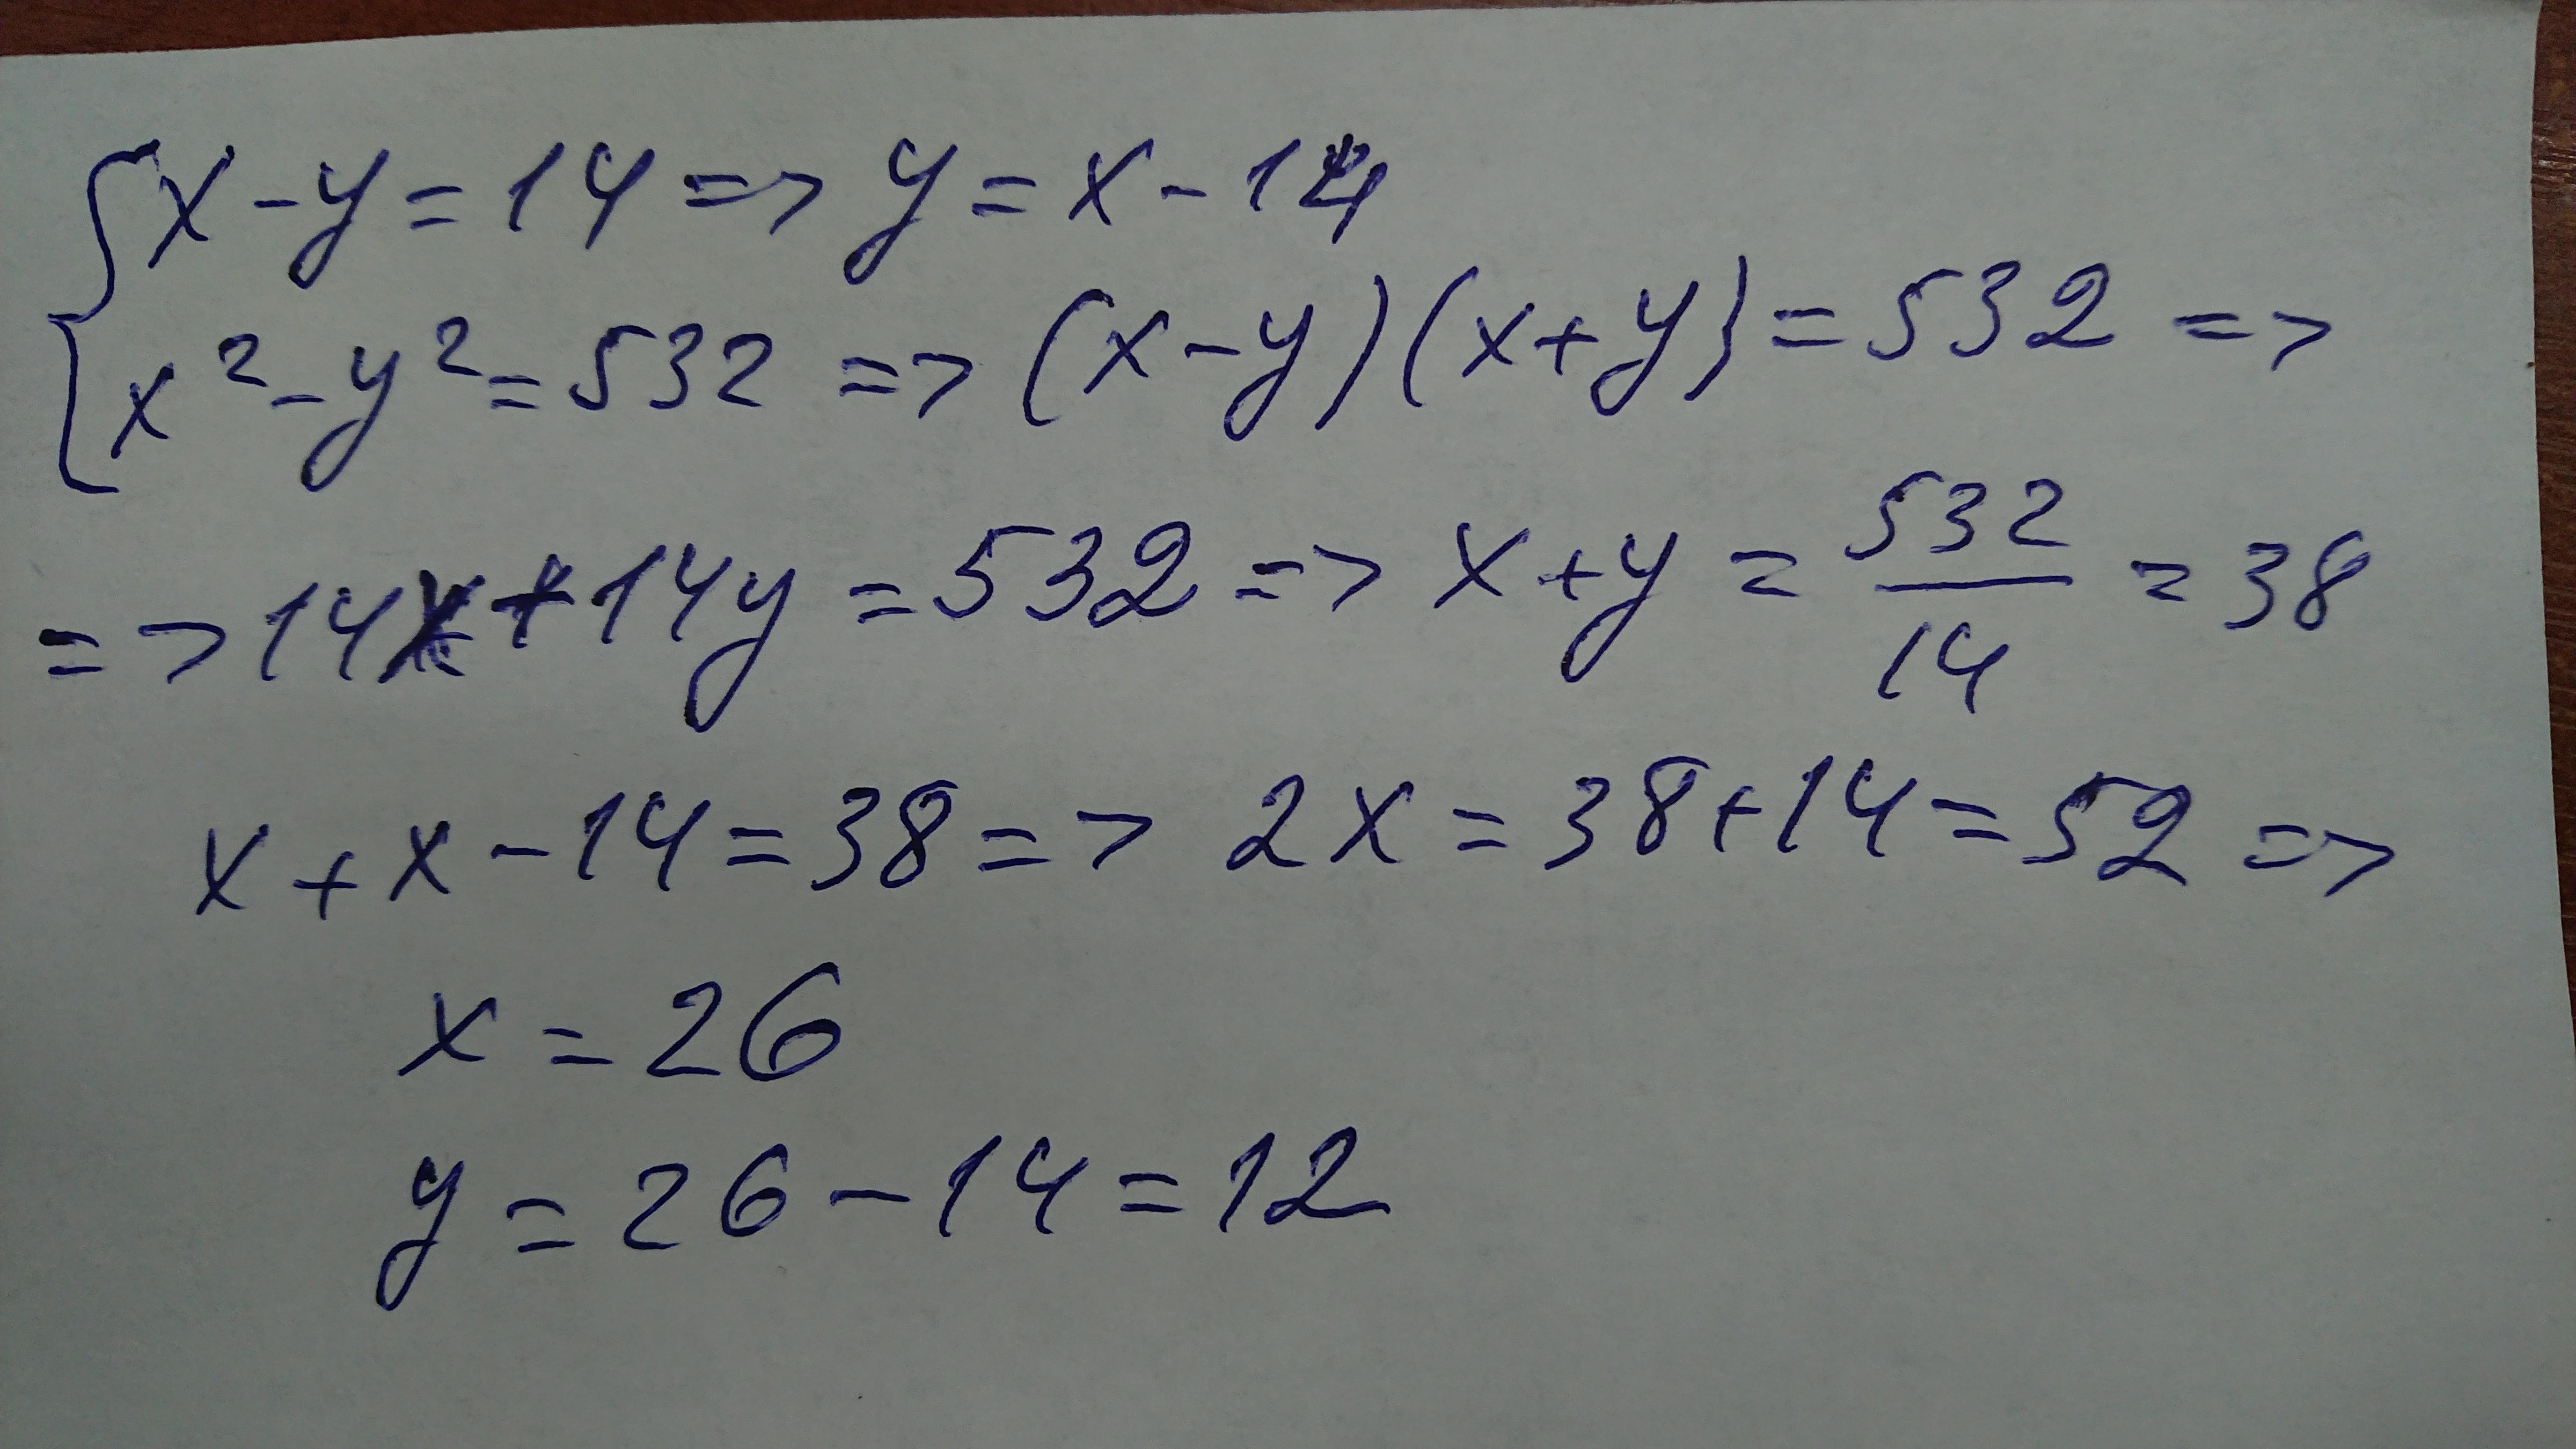 { x - y = 14 => y = x - 14
x² - y² = 532 => (x - y)(x + y) = 532 =>
=> 14x + 14y = 532 => x + y = 532/14 = 38
x + x - 14 = 38 => 2x = 38 + 14 = 52 =>
x = 26
y = 26 - 14 = 12